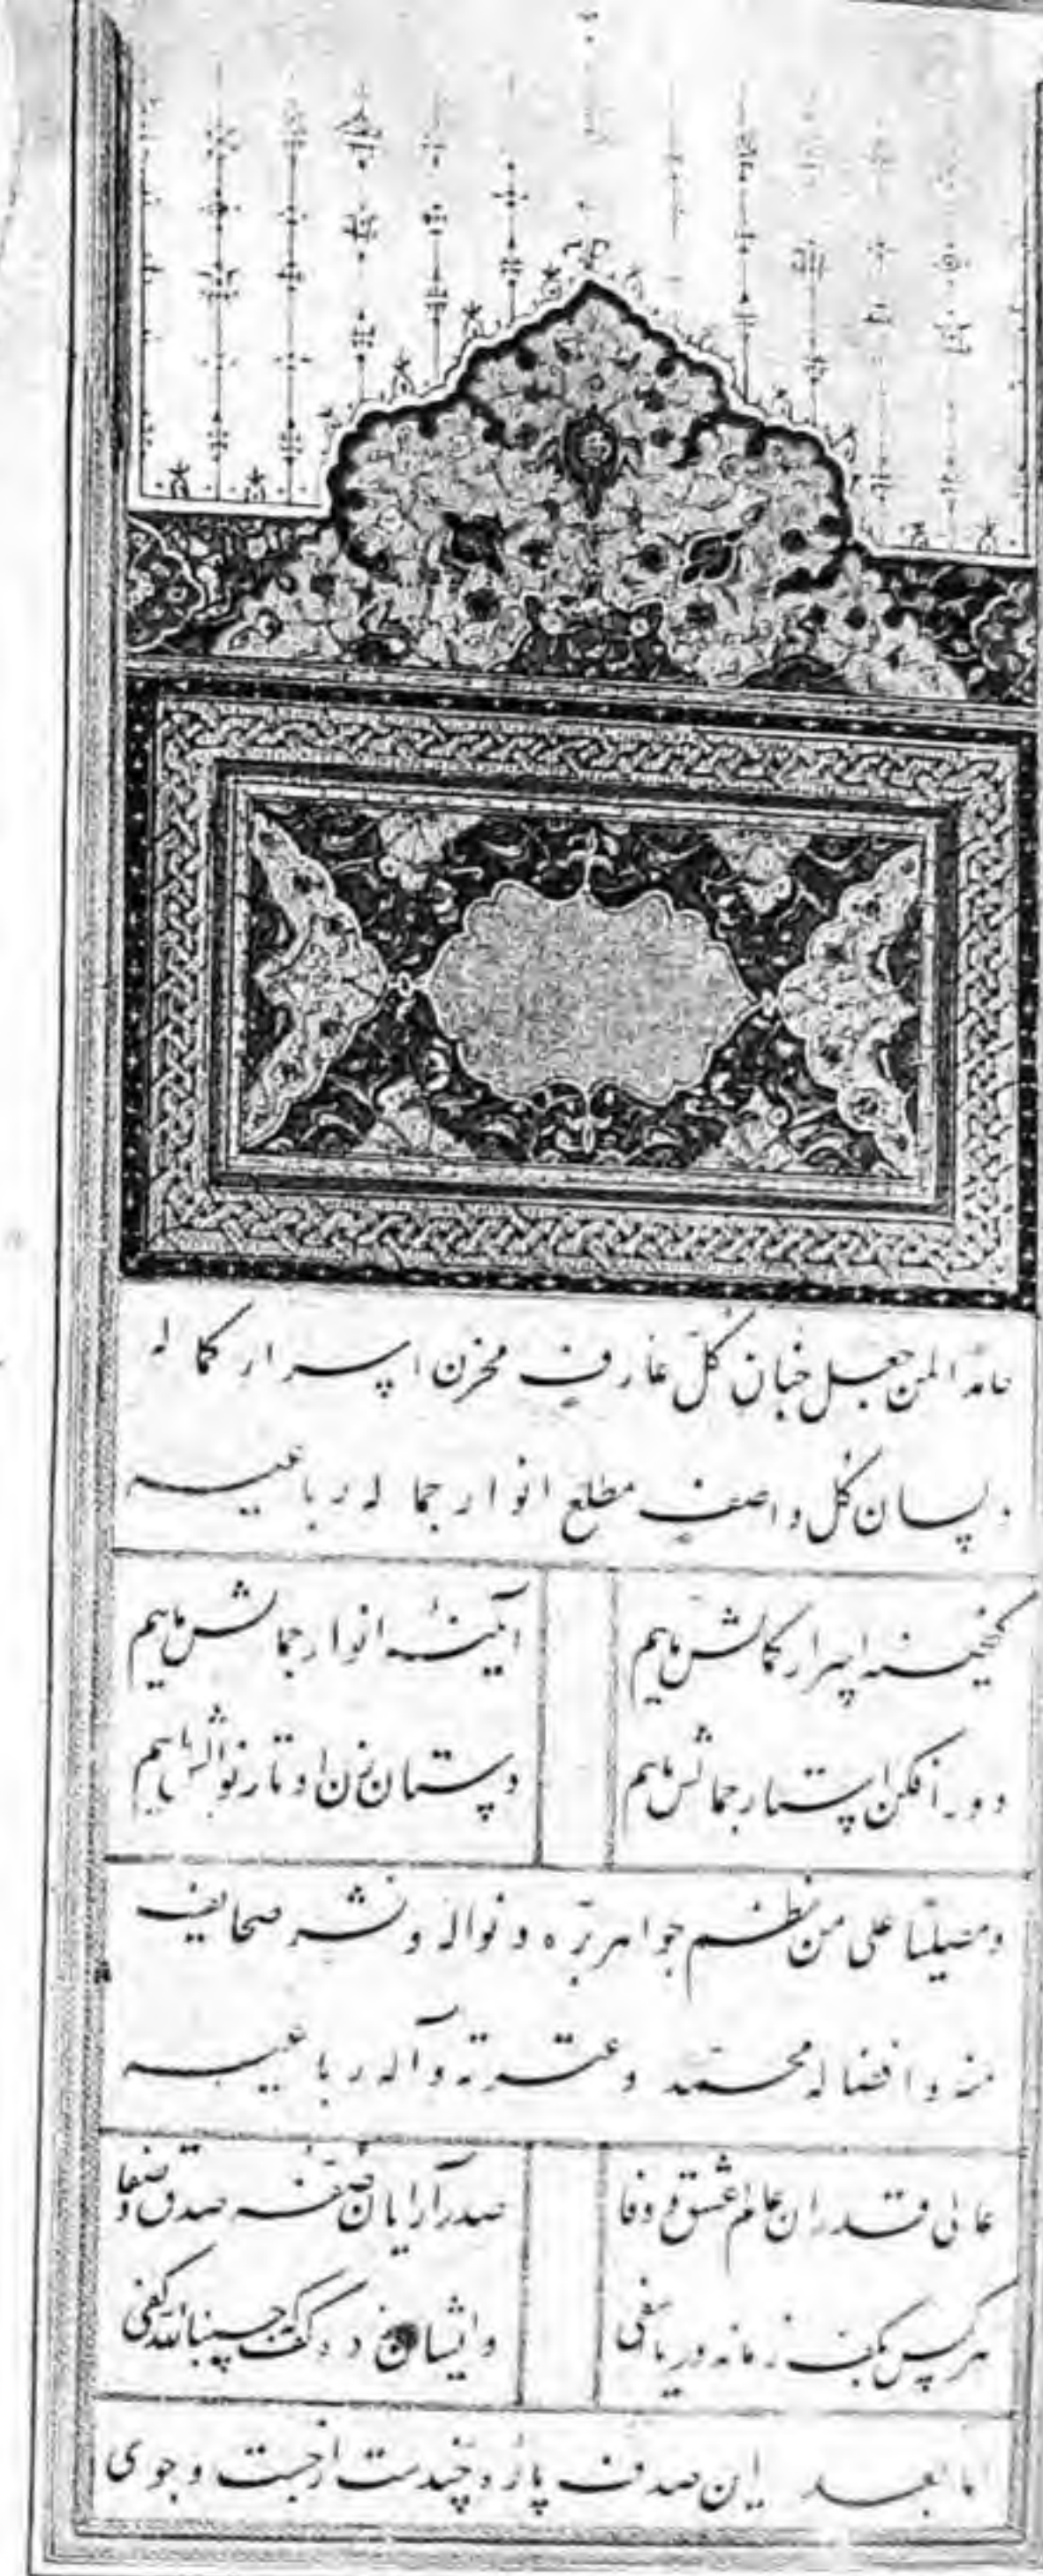 حامدا لمن جعل جنان کل عارف مخزن اسرار کماله
و لسان کل واصف مطلع انوار جماله رباعیه
گنجینه اسرار کمالش ماییم آیینه انوار جمالش ماییم
دور افکن استار جمالش ماییم دستان زن اوتار نوالش ماییم
و مصلیا علی من نظم جواهر بره و نواله و نشر صحایف
منه و افضاله محمد و عترته و آله رباعیه
عالی قدران عالم عشق و وفا صدر آرایان صفه صدق و صفا
هر کس بکف زمانه در یافتی و ایشان زده کف حسبنا الله کفی
اما بعد این صدف پاره چندست از جست و جوی